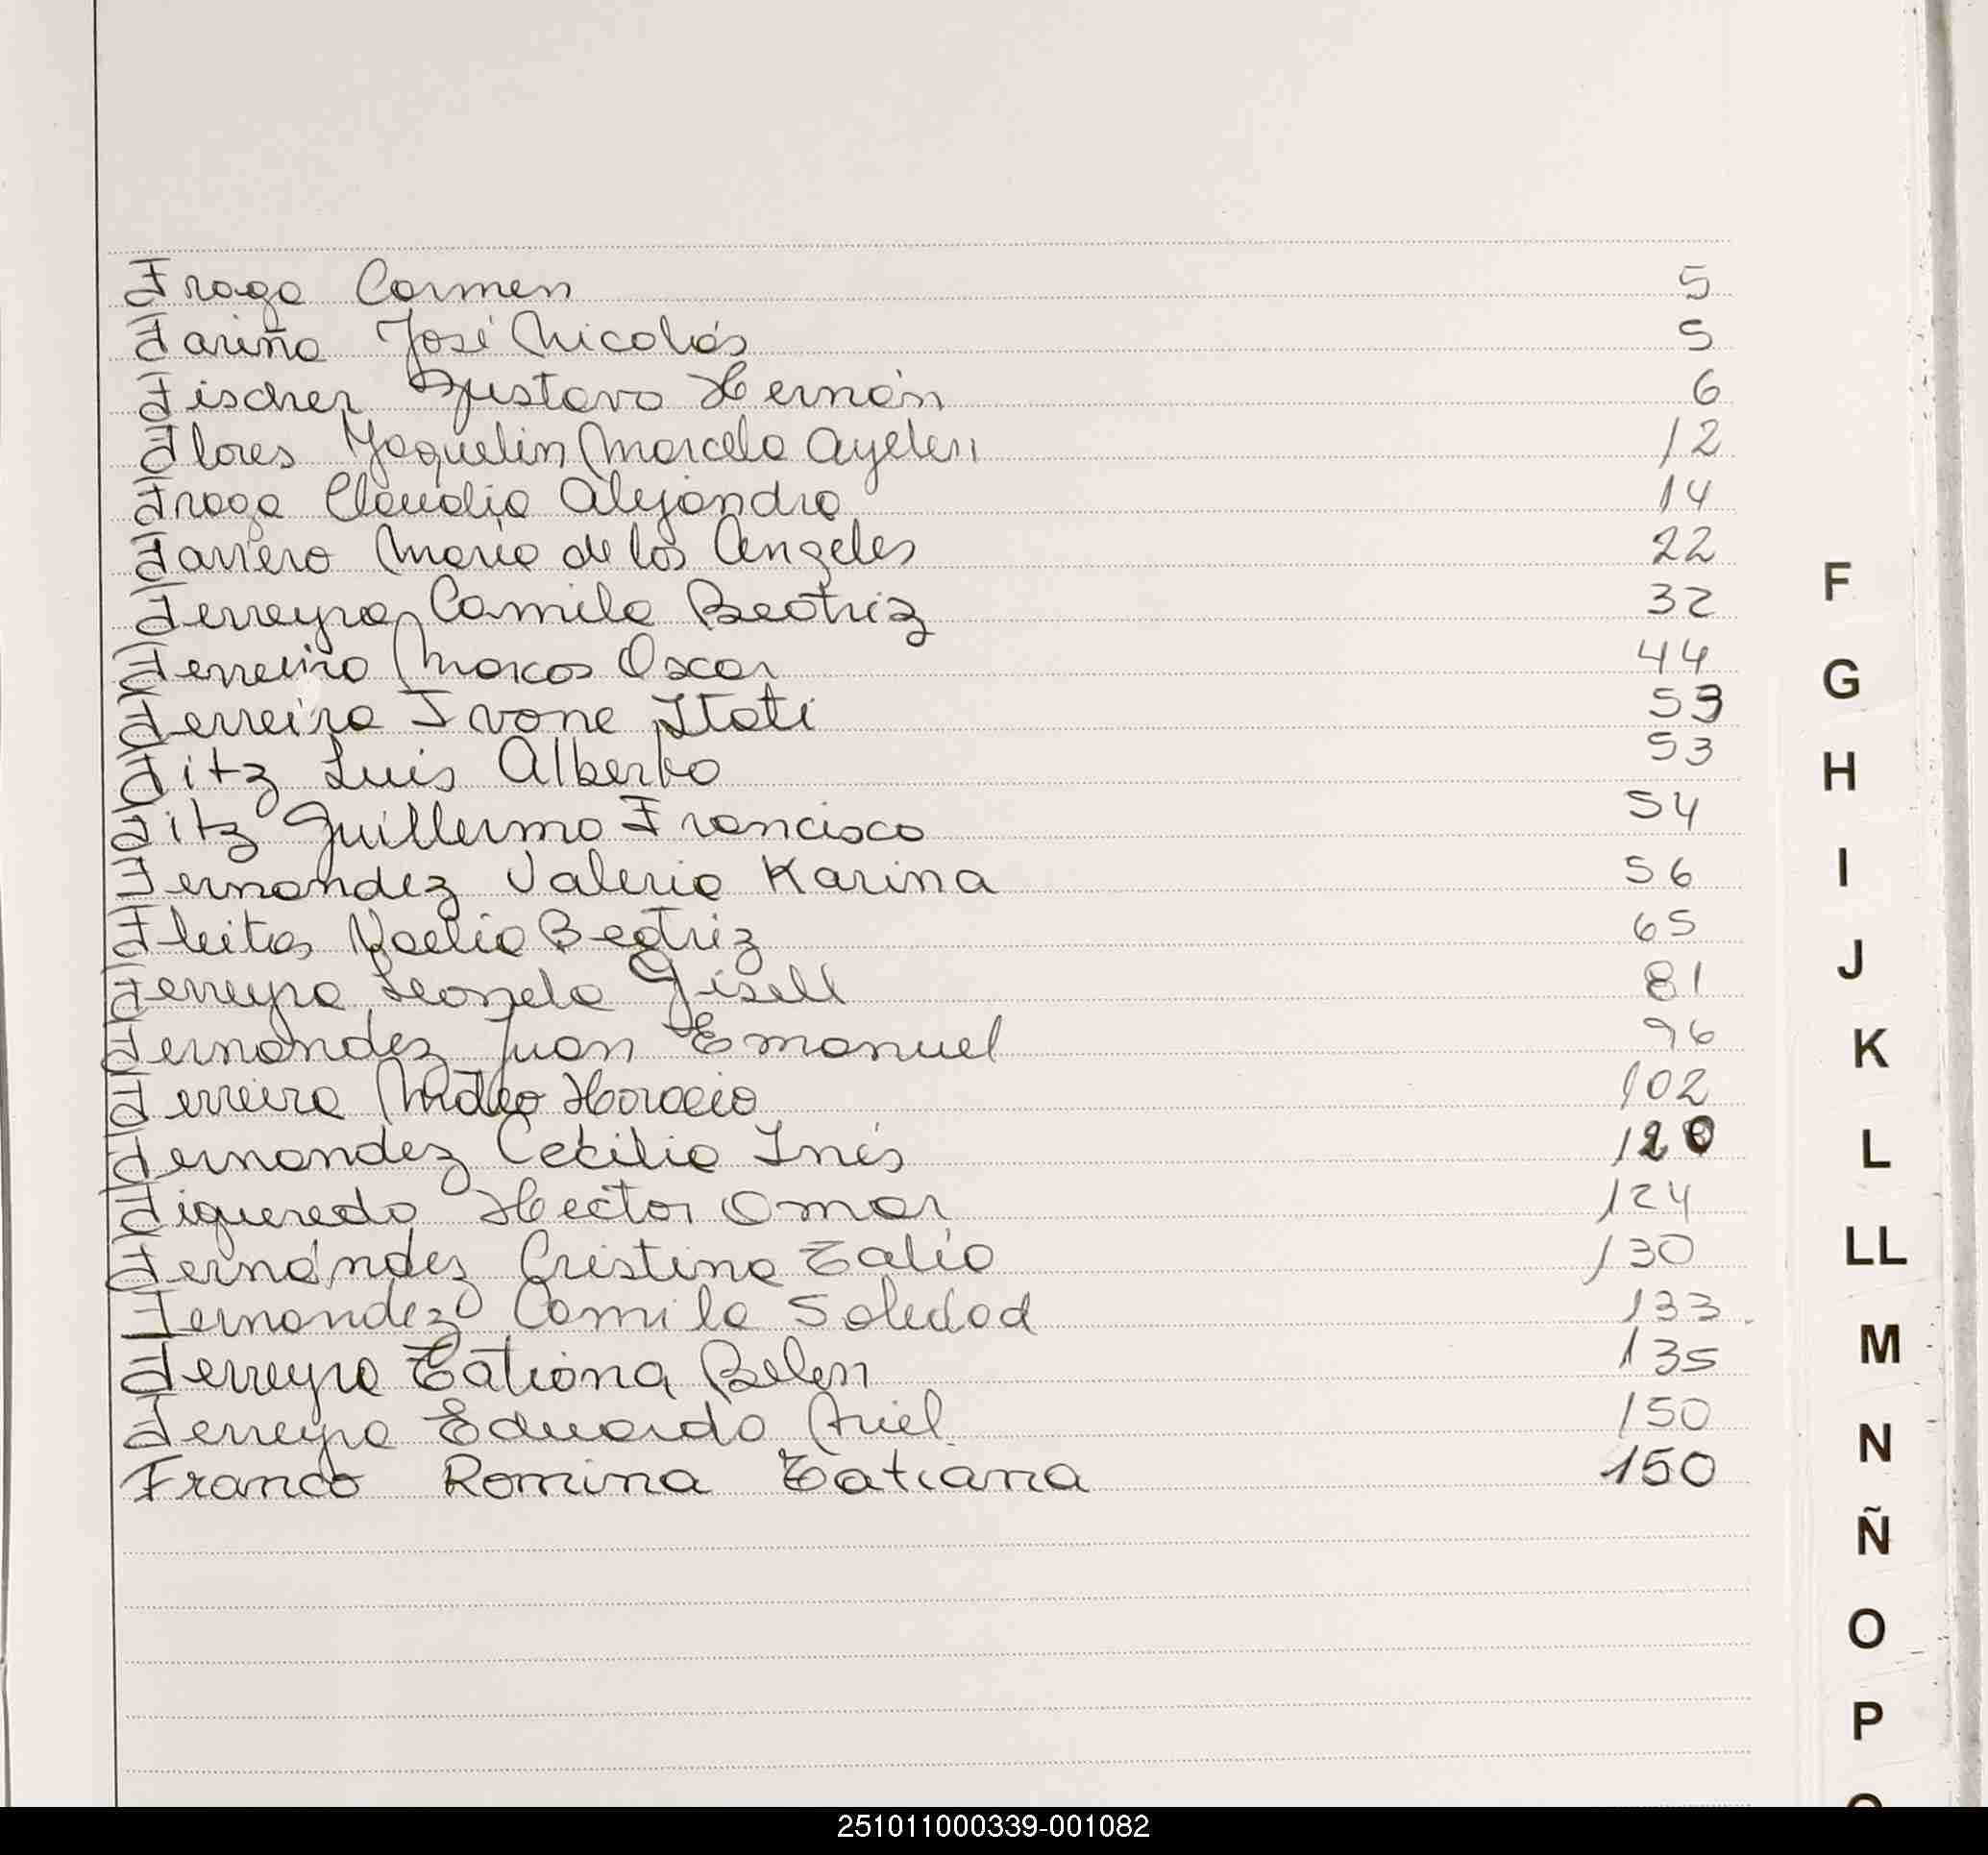 Fraga Carmen 5
Fariña José Nicolás 5
Fischer Gustavo Hernán 6
Flores Yaquelin Marcela Ayelen 12
Fraga Claudia Alejandra 14
Farrero María de los Angeles 22
Ferreyra Camila Beatriz 32
Ferreiro Marcos Oscar 44
Ferreira Ivone Itati 53
Fitz Luis Alberto 53
Fitz Guillermo Francisco 54
Fernandez Valeria Karina 56
Fleitas Noelia Beatriz 65
Ferreyra Leonela Gisell 81
Fernandez Juan Emanuel 96
Ferreira Mateo Horacio 102
Fernandez Cecilia Inés 120
Figueredo Hector Omar 124
Fernández Cristina Talía 130
Fernandez Camila Soledad 133
Ferreyra Tatiana Belen 135
Ferreyra Eduardo Ariel 150
Franco Romina Tatiana 150
F
G
H
I
J
K
L
LL
M
N
Ñ
O
P
251011000339-001082